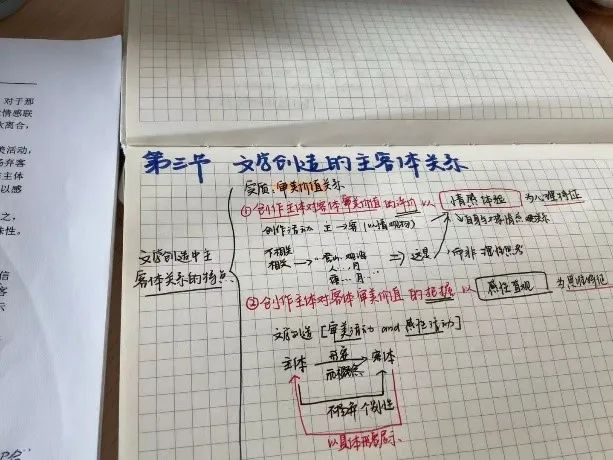 对于那
情感联
离合，
美活动，
弃客
主体
以感
之，
性。
信
客
示
第三节 文学创造的主客体关系
实质：审美价值关系
①创作主体对客体审美价值的评价以 情感体验 为心理特征
创作活动 主→客（以情观物）
不相关
相关→
人…月
⇒这是 而非理性思考
文学创造中主
客体关系的特点
②创作主体对客体审美价值的把握以 感性直观 为思维特征
文学创造[审美活动 and 感性活动]
主体 客体
而概念
不摒弃个别性
以具体形容展示.